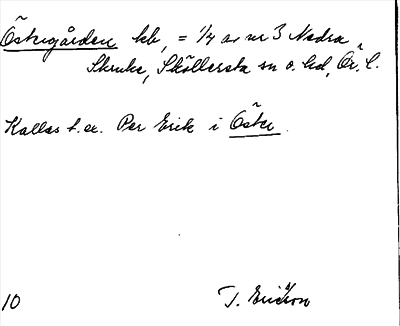 Östergården hb, = 1/4 av nr 3 Nedra
Skruke, Sköllersta sn o. hd, Ör. l.
Kallas t. ex. Per Erik i Öster.
10 T. Ericsson